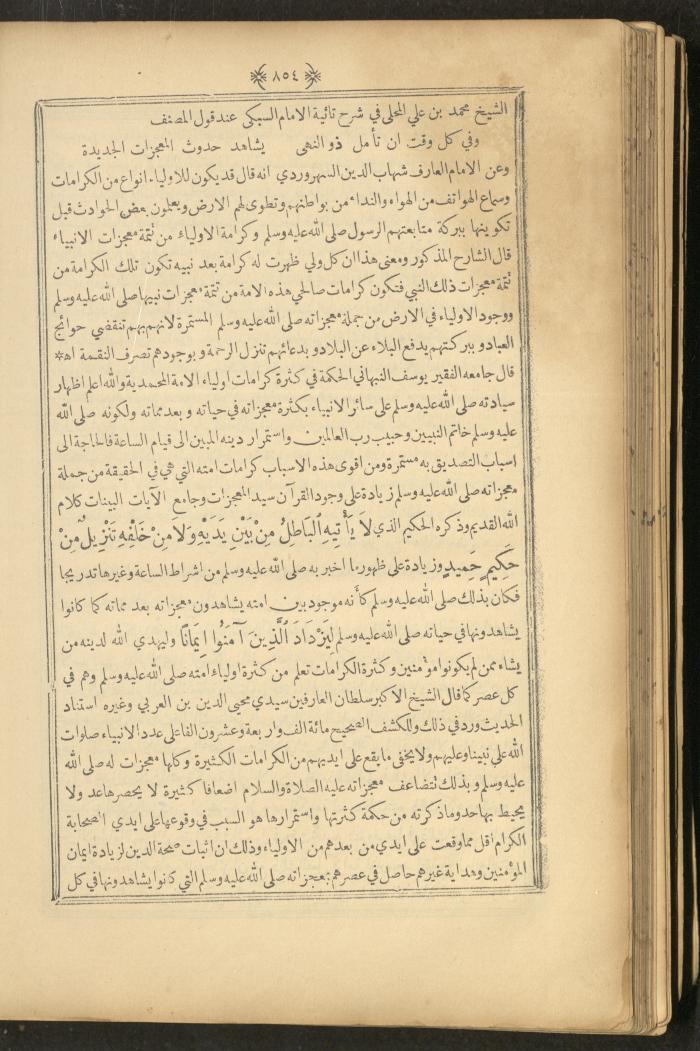 ٨٥٤
الشيخ محمد بن علي المحلى في شرح تائية الامام السبكي عند قول المصنف
وفي كل وقت ان تأمل ذو النهى يشاهد حدوث المعجزات الجديدة
وعن الامام العارف شهاب الدين السهروردي انه قال قد يكون للاولياء انواع من الكرامات
وسماع الهواتف من الهواء والنداء من بواطنهم وتطوى لهم الارض ويعلمون بعض الحوادث قبل
تكوينها ببركة متابعتهم الرسول صلى الله عليه وسلم وكرامة الاولياء من تتمة معجزات الانبياء
قال الشارح المذكور ومعنى هذا ان كل ولي ظهرت له كرامة بعد نبيه تكون تلك الكرامة من
تتمة معجزات ذلك النبي فتكون كرامات صالحي هذه الامة من تتمة معجزات نبيها صلى الله عليه وسلم
ووجود الاولياء في الارض من جملة معجزاته صلى الله عليه وسلم المستمرة لانهم بهم تنقضي حوائج
العباد وببركتهم يدفع البلاء عن البلاد وبدعائهم تنزل الرحمة وبوجودهم تصرف النقمة اهـ *
قال جامعه الفقير يوسف النبهاني الحكمة في كثرة كرامات اولياء الامة المحمدية والله اعلم اظهار
سيادته صلى الله عليه وسلم على سائر الانبياء بكثرة معجزاته في حياته وبعد مماته ولكونه صلى الله
عليه وسلم خاتم النبيين وحبيب رب العالمين واستمرار دينه المبين الى قيام الساعة فالحاجة الى
اسباب التصديق به مستمرة ومن اقوى هذه الاسباب كرامات امته التي هي في الحقيقة من جملة
معجزاته صلى الله عليه وسلم زيادة على وجود القرآن سيد المعجزات وجامع الآيات البينات كلام
الله القديم وذكره الحكيم الذي لَا يَأْتِيهِ ٱلْبَاطِلُ مِنْ بَيْنِ يَدَيْهِ وَلَا مِنْ خَلْفِهِ تَنْزِيلٌ مِنْ
حَكِيمٍ حَمِيدٍ وزيادة على ظهور ما اخبر به صلى الله عليه وسلم من اشراط الساعة وغيرها تدريجا
فكان بذلك صلى الله عليه وسلم كأنه موجود بين امته يشاهدون معجزاته بعد مماته كما كانوا
يشاهدونها في حياته صلى الله عليه وسلم لِيَزْدَادَ ٱلَّذِينَ آمَنُوا إِيمَانًا وليهدي الله لدينه من
يشاء ممن لم يكونوا مؤمنين وكثرة الكرامات تعلم من كثرة اولياء امته صلى الله عليه وسلم وهم في
كل عصر كما قال الشيخ الاكبر سلطان العارفين سيدي محيي الدين بن العربي وغيره استناد
الحديث ورد في ذلك وللكشف الصحيح مائة الف واربعة وعشرون الفا على عدد الانبياء صلوات
الله على نبينا وعليهم ولا يخفى ما يقع على ايديهم من الكرامات الكثيرة وكلها معجزات له صلى الله
عليه وسلم وبذلك تتضاعف معجزاته عليه الصلاة والسلام اضعافا كثيرة لا يحصرها عد ولا
يحيط بها حد وما ذكرته من حكمة كثرتها واستمرارها هو السبب في وقوعها على ايدي الصحابة
الكرام اقل مما وقعت على ايدي من بعدهم من الاولياء وذلك ان اثبات صحة الدين لزيادة ايمان
المؤمنين وهداية غيرهم حاصل في عصرهم بمعجزاته صلى الله عليه وسلم التي كانوا يشاهدونها في كل